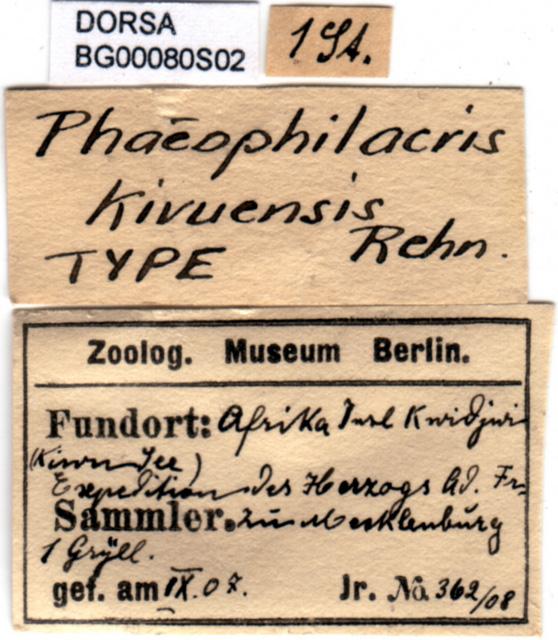 DORSA
BG00080S02
1 St.
Phaeophilacris
kivuensis
Rehn.
TYPE
Zoolog. Museum Berlin.
Fundort: Afrika Insl Kwidjwi
(Kiwu See)
Expedition des Herzogs Ad. Fr.
Sammler. zu Mecklenburg
1 Gryll.
gef. am IX. 07. Jr. No. 362/08